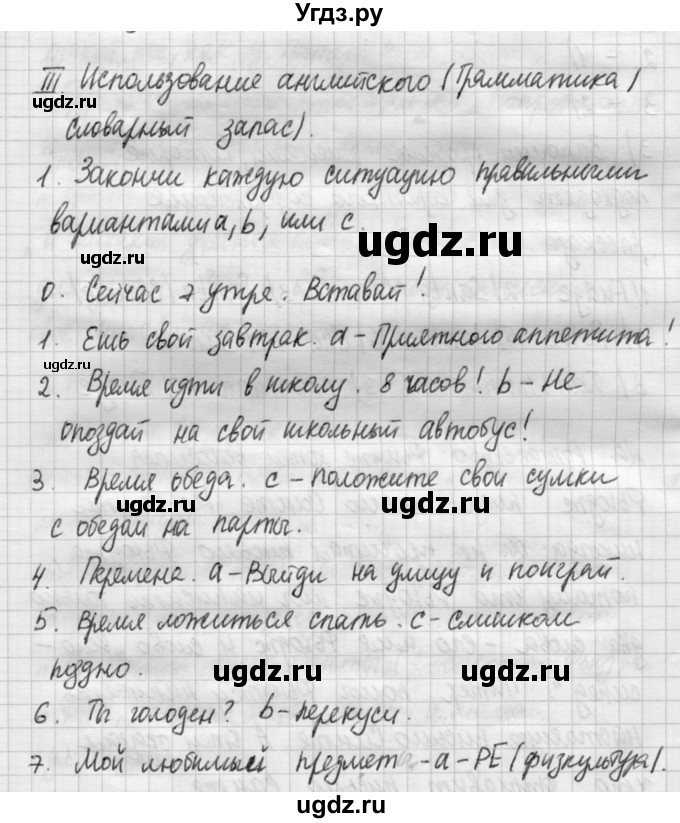 Угдз.ру
III Использование английского (Грамматика /
словарный запас).
1. Закончи каждую ситуацию правильными
вариантами a, b, или c.
0. Сейчас 7 утра. Вставай!
1. Ешь свой завтрак. a - Приятного аппетита!
2. Время идти в школу. 8 часов! b - Не
опоздай на свой школьный автобус!
3. Время обеда. c - положите свои сумки
с обедом на парты.
4. Перемена. a - Выйди на улицу и поиграй.
5. Время ложиться спать. c - слишком
поздно.
6. Ты голоден? b - перекуси.
7. Мой любимый предмет - a - PE (физкультура).
ugdz.ru
ugdz.ru
ugdz.ru
ugdz.ru
ugdz.ru
ugdz.ru
ugdz.ru
ugdz.ru